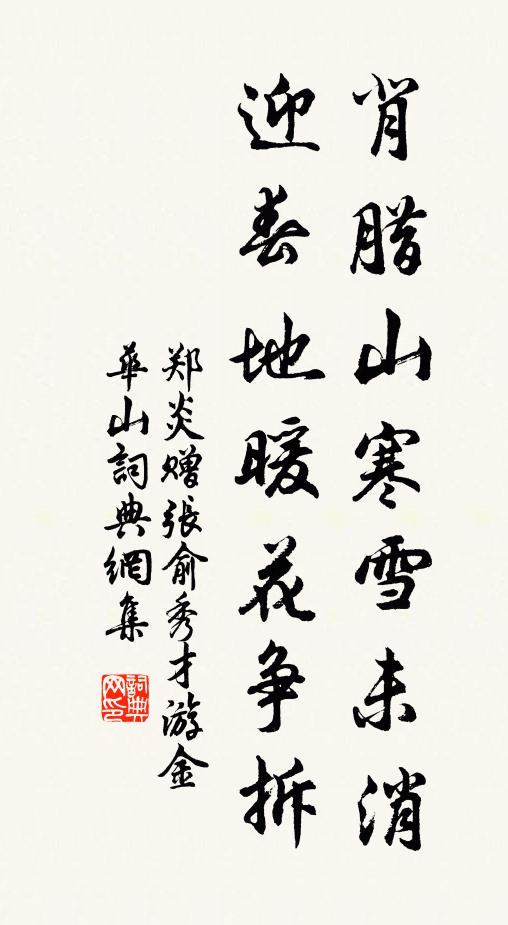 肖腊山寒雪未消
迎春地暖花争拆
郑炎赠張俞秀才游金
華山詞典網集
詞典网印